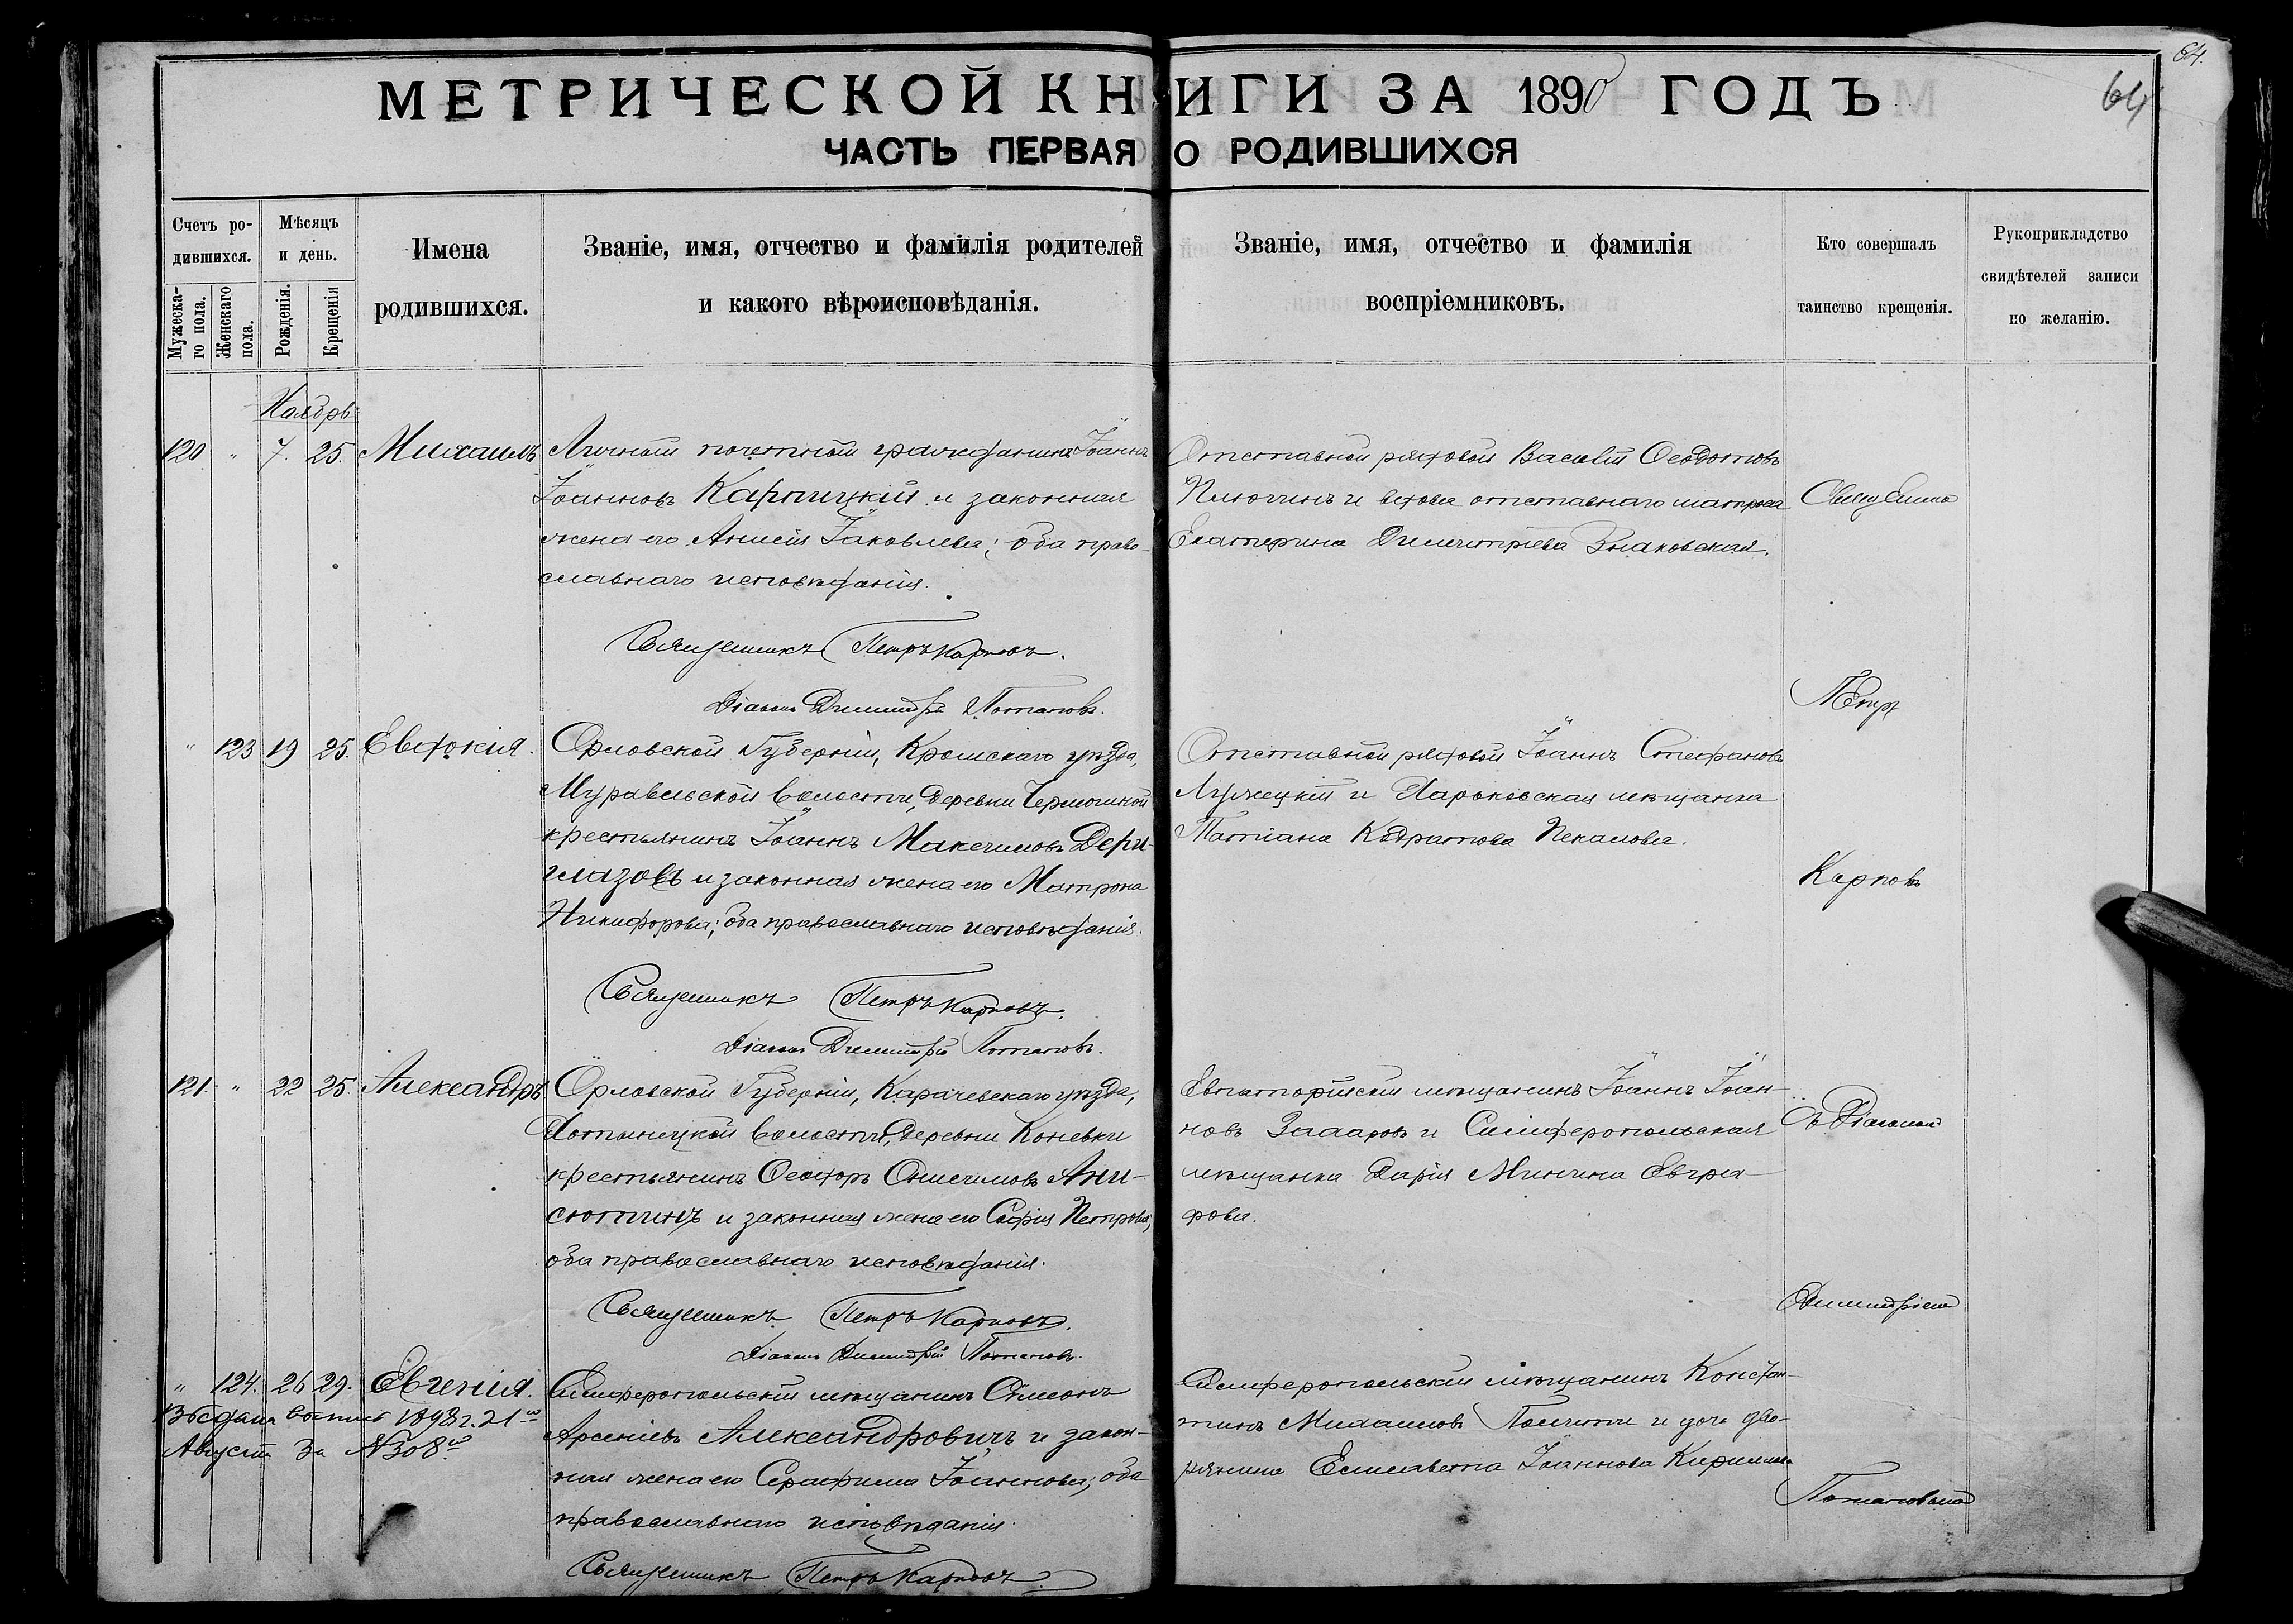 64.
64
МЕТРИЧЕСКОЙ КНИГИ ЗА 1890 ГОДЪ
ЧАСТЬ ПЕРВАЯ О РОДИВШИХСЯ
Счетъ ро-
дившихся.
Мужеска-
го пола.
Женскаго
пола.
Мѣсяцъ
и день.
Рожденія.
Крещенія
Имена
родившихся.
Званіе, имя, отчество и фамилія родителей
и какого вѣроисповѣданія.
Званіе, имя, отчество и фамилія
воспріемниковъ.
Кто совершалъ
таинство крещенія.
Рукоприкладство
свидѣтелей записи
по желанію.
Ноябрь
120 " 7. 25. Михаилъ
Личный почетный гражданинъ Іоаннъ
Іоанновъ Карпицкій и законная
жена его Анисія Іаковлева; оба право-
славнаго исповѣданія.
Священникъ Петръ Карповъ.
Діаконъ Димитрій Потаповъ.
Отставной рядовой Василій Ѳеодотовъ
и вдова отставнаго матроса
Екатерина Димитріева Знаковская.
" 123 19 25. Евдокія.
Орловской Губерніи, Кромскаго уѣзда,
Муравльской волости, деревни
крестьянинъ Іоаннъ Максимовъ Дери-
глазовъ и законная жена его Матрона
Никифорова; оба православнаго исповѣданія.
Священникъ Петръ Карповъ.
Діаконъ Димитрій Потаповъ.
Отставной рядовой Іоаннъ Стефановъ
и Харьковская мѣщанка
Татіана Кодратова Пекалова.
121. " 22 25. Александръ
Орловской Губерніи, Карачевскаго уѣзда,
Хотынецкой волости, деревни Коневки
крестьянинъ Ѳеодоръ Онисимовъ Ани-
сютинъ и законная жена его Софія Петрова,
оба православнаго исповѣданія.
Священникъ Петръ Карповъ.
Діаконъ Димитрій Потаповъ.
Евпаторійскій мѣщанинъ Іоаннъ Іоан-
новъ и Симферопольская
мѣщанка Дарія Минина Евгра-
фова.
" 124. 26 29. Евгенія.
Выдана выпись 1898 г. 21го
Августа за № 308м
Симферопольскій мѣщанинъ Сѵмеонъ
Арсеніевъ Александровичъ и закон-
ная жена его Серафима Іоаннова; оба
православнаго исповѣданія.
Священникъ Петръ Карповъ
Симферопольскій мѣщанинъ Констан-
тинъ Михаиловъ и дочь дво-
рянина Елисавета Іоаннова
Священникъ
Петръ
Карповъ
съ Діакономъ
Димитріемъ
Потаповымъ